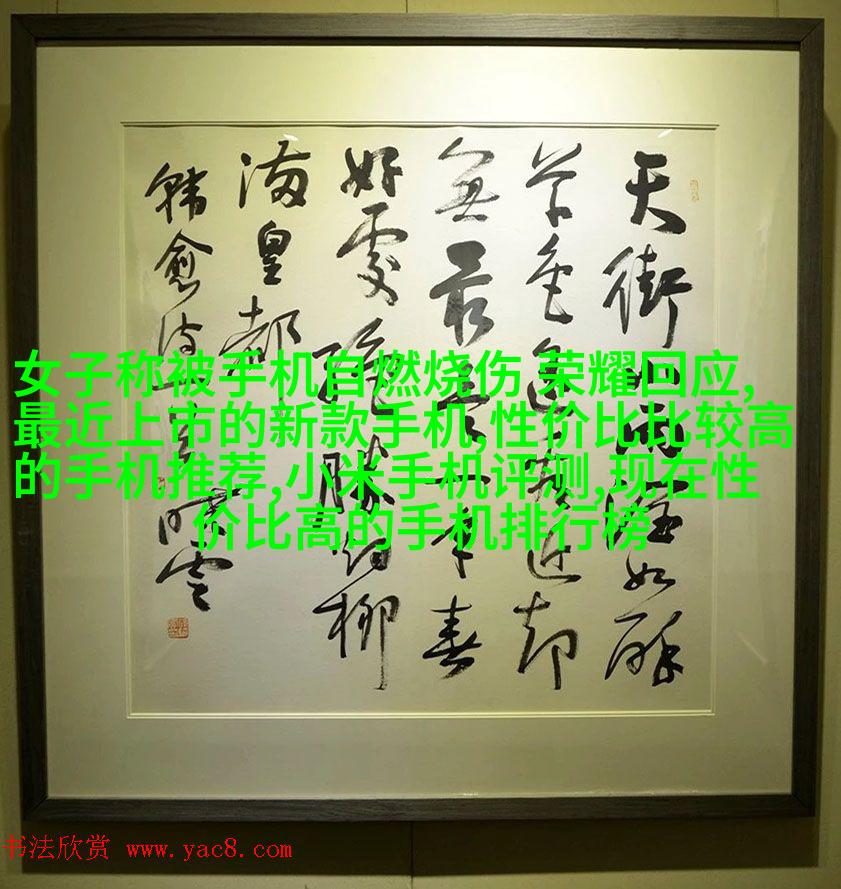 女子称被手机自燃烧伤 荣耀回应,
最近上市的新款手机,性价比比较高
的手机推荐,小米手机评测,现在性
价比高的手机排行榜
天街小雨潤如酥
草色遥看近却
無最是一年春
好處絶勝烟柳
滿皇都
韓愈诗
书法欣赏 www.yac8.com